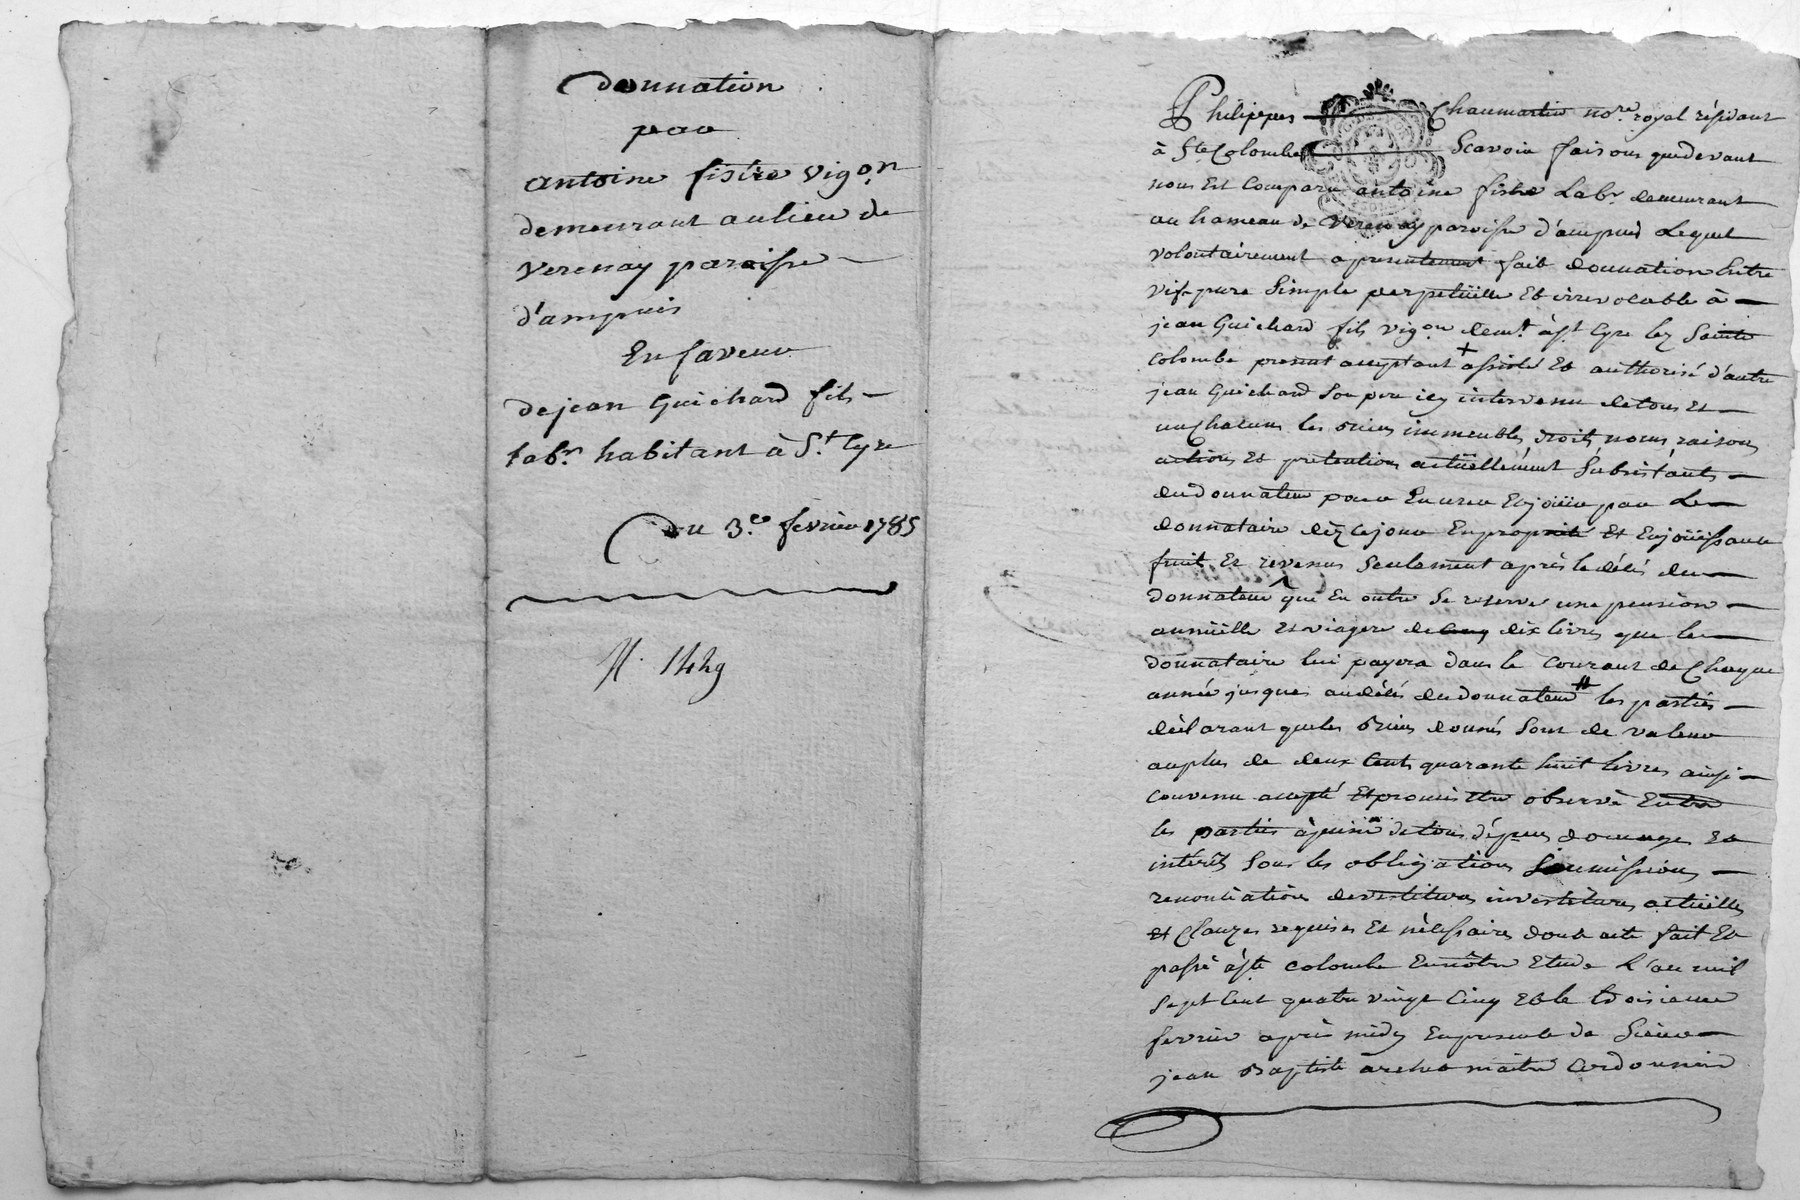 donnation
par
antoine fistre vigon
demeurant au lieu de
verenay paroisse
d'ampuis
En faveur
de jean Guichard fils
labr. habitant à St. Cyre
Du 3.e fevrier 1785
N. 1429
Philippes Chaumartin nore. royal résidant
à Ste Colombe Scavoir faisons que devant
nous Est Comparu antoine fistre Labr. demeurant
au hameau de Verenay paroisse d'ampuis Lequel
volontairement a presentement fait donnation Entre
vifs pure Simple perpetüelle Et irrevocable à
jean Guichard fils vigon demt. à St Cyre lez Sainte
Colombe present acceptant + assisté Et authorisé d'autre
jean Guichard Son pere icy intervenu de tous Et
un Chacuns les biens immeubles droits noms raisons
actions Et pretentions actüellement Subsistants
du donnateur pour En user Et joüir par Le
donnataire dèz ce jour En proprieté Et En joüissance
fruit Et revenus Seulement après le décés du
donnateur qui En outre Se reserve une pension
annüelle Et viagere de dix livres que le
donnataire lui payera dans le Courant de Chaque
année jusques au décés du donnateur # les parties
déclarant que les biens donnés Sont de valeur
au plus de deux Cents quarante huit livres ainsi
Convenu accepté Et promis Etre observé Entre
les parties à peine de tous dépens domages Et
intérêts Sous les obligations Soumissions
renontiations devestitures investitures actüelles
Et Clauzes requises Et nécessaires dont acte fait Et
passé à Ste Colombe En nôtre Etude L'an mil
Sept Cent quatre vingt Cinq Et le troisieme
fevrier après midy En presence de Sieur
jean Baptiste archer maitre Cordonnier